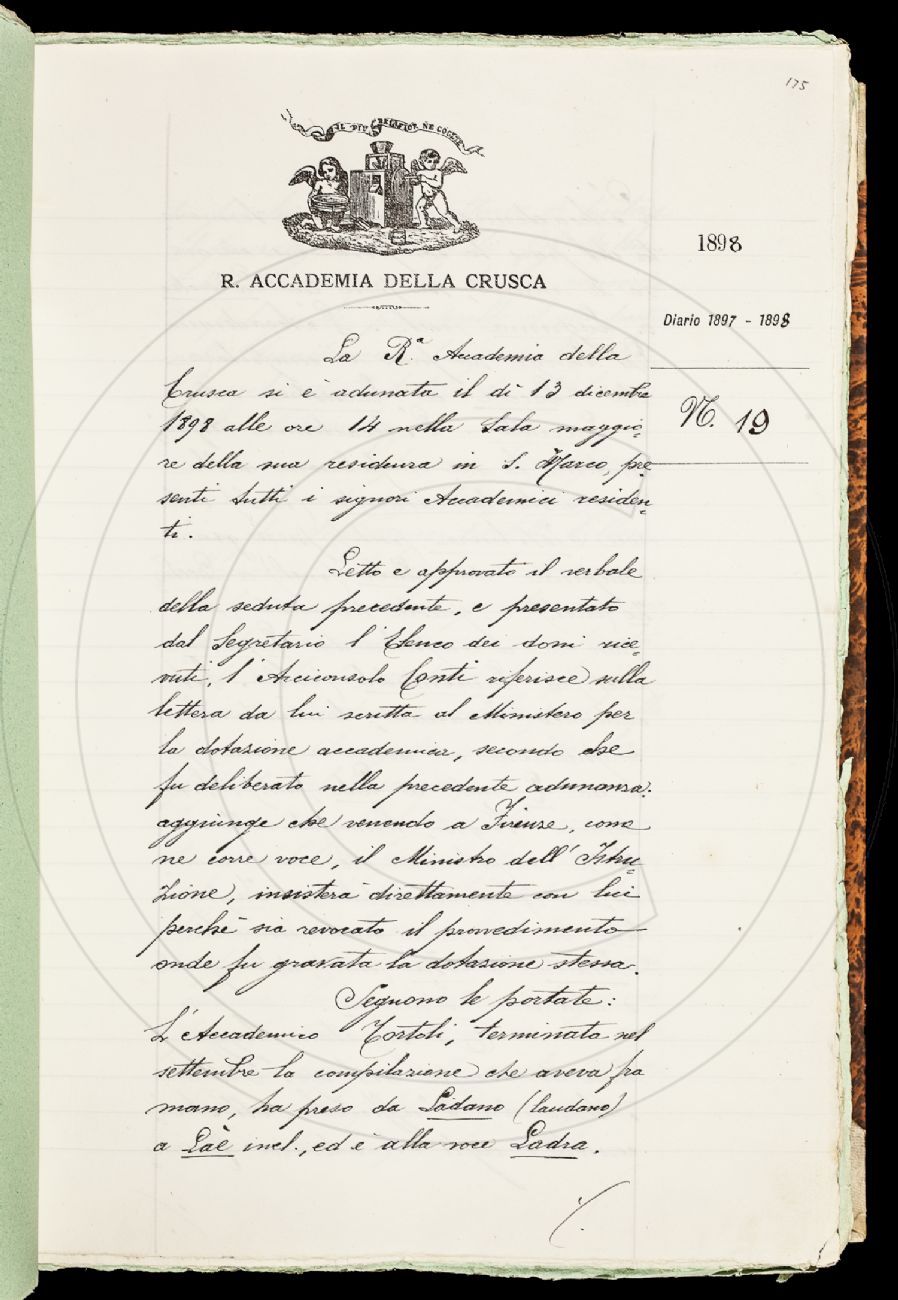 175
IL PIÙ BEL FIOR NE COGLIE
R. ACCADEMIA DELLA CRUSCA
1898
Diario 1897 - 1898
N. 19
La R.ª Accademia della
Crusca si è adunata il dì 13 dicembre
1898 alle ore 14 nella Sala maggio=
re della sua residenza in S. Marco, pre=
senti tutti i signori Accademici residen=
ti.
Letto e approvato il verbale
della seduta precedente, e presentato
dal Segretario l'Elenco dei doni rice=
vuti, l'Arciconsolo Conti riferisce sulla
lettera da lui scritta al Ministero per
la dotazione accademica, secondo che
fu deliberato nella precedente adunanza:
aggiunge che venendo a Firenze, come
ne corre voce, il Ministro dell'Istru=
zione, insisterà direttamente con lui
perchè sia revocato il provvedimento
onde fu gravata la dotazione stessa.
Seguono le portate:
L'Accademico Tortoli, terminata nel
settembre la compilazione che aveva fra
mano, ha preso da Ladano (laudano)
a Laè incl., ed è alla voce Ladra.